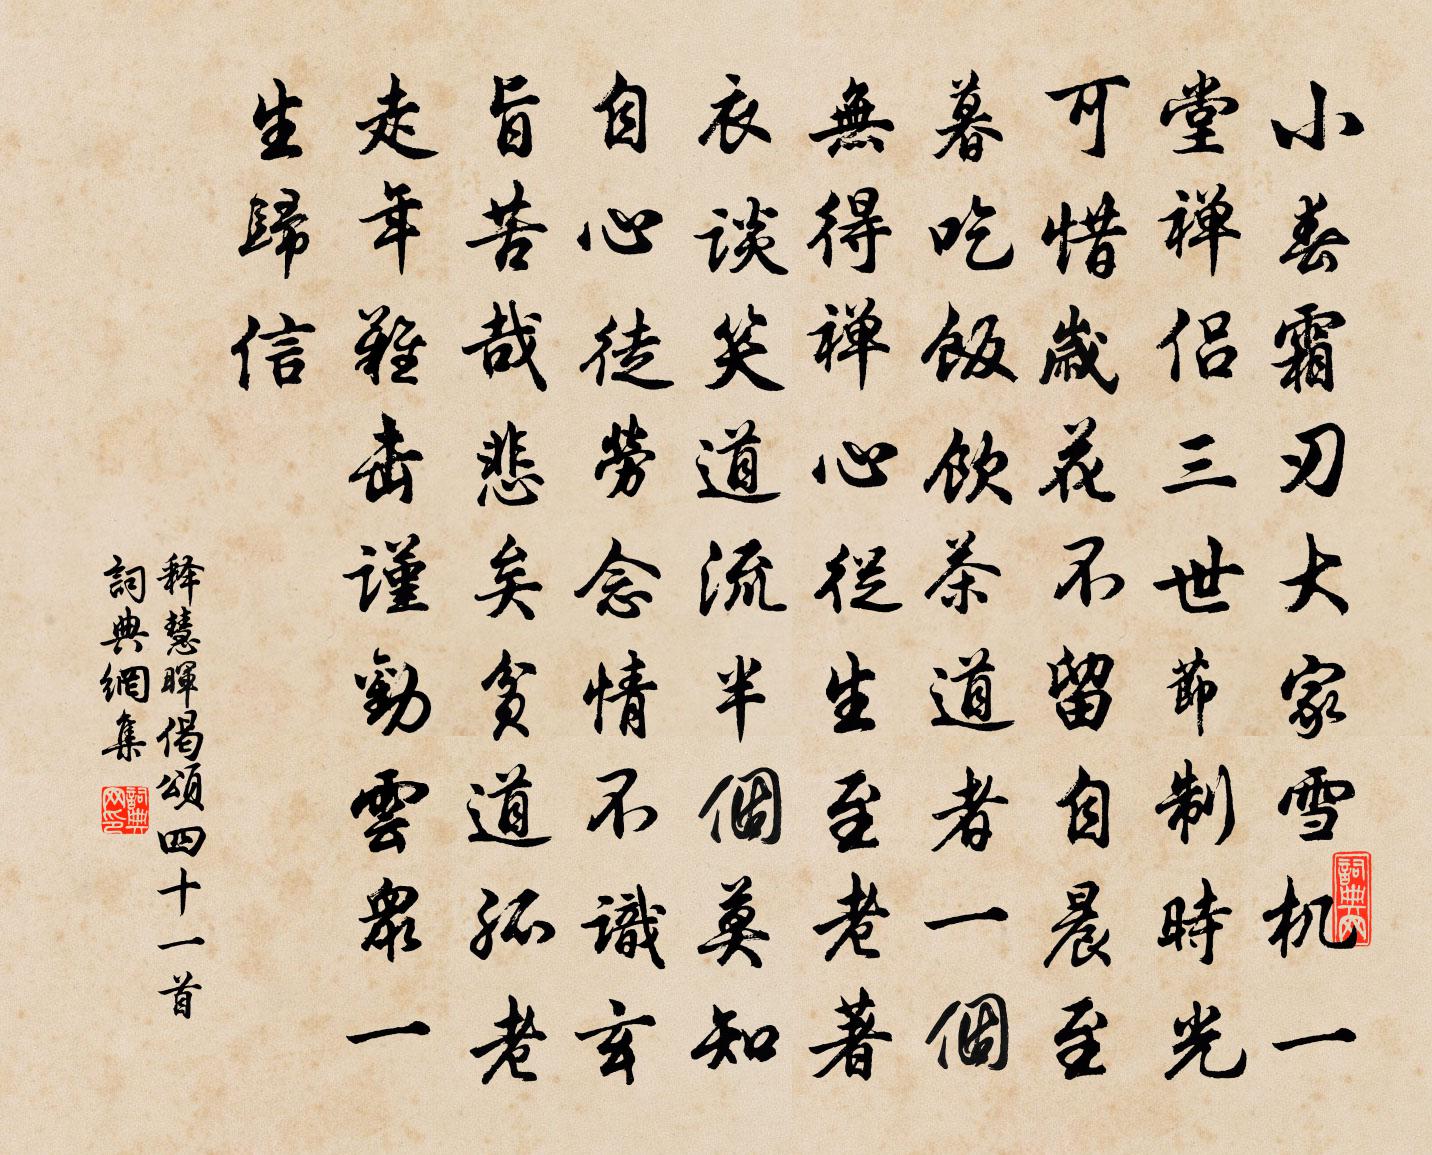 小春霜刃大家雪机一
堂禅侣三世節制時光
可惜歲花不留自晨至
暮吃飯飲茶道者一個
無得禅心從生至老著
衣談笑道流半個莫知
自心徒勞念情不識玄
旨苦哉悲矣貧道孤老
走年難击謹勸雲眾一
生歸信
释慧暉偈頌四十一首
詞典網集
詞典网
詞典网印